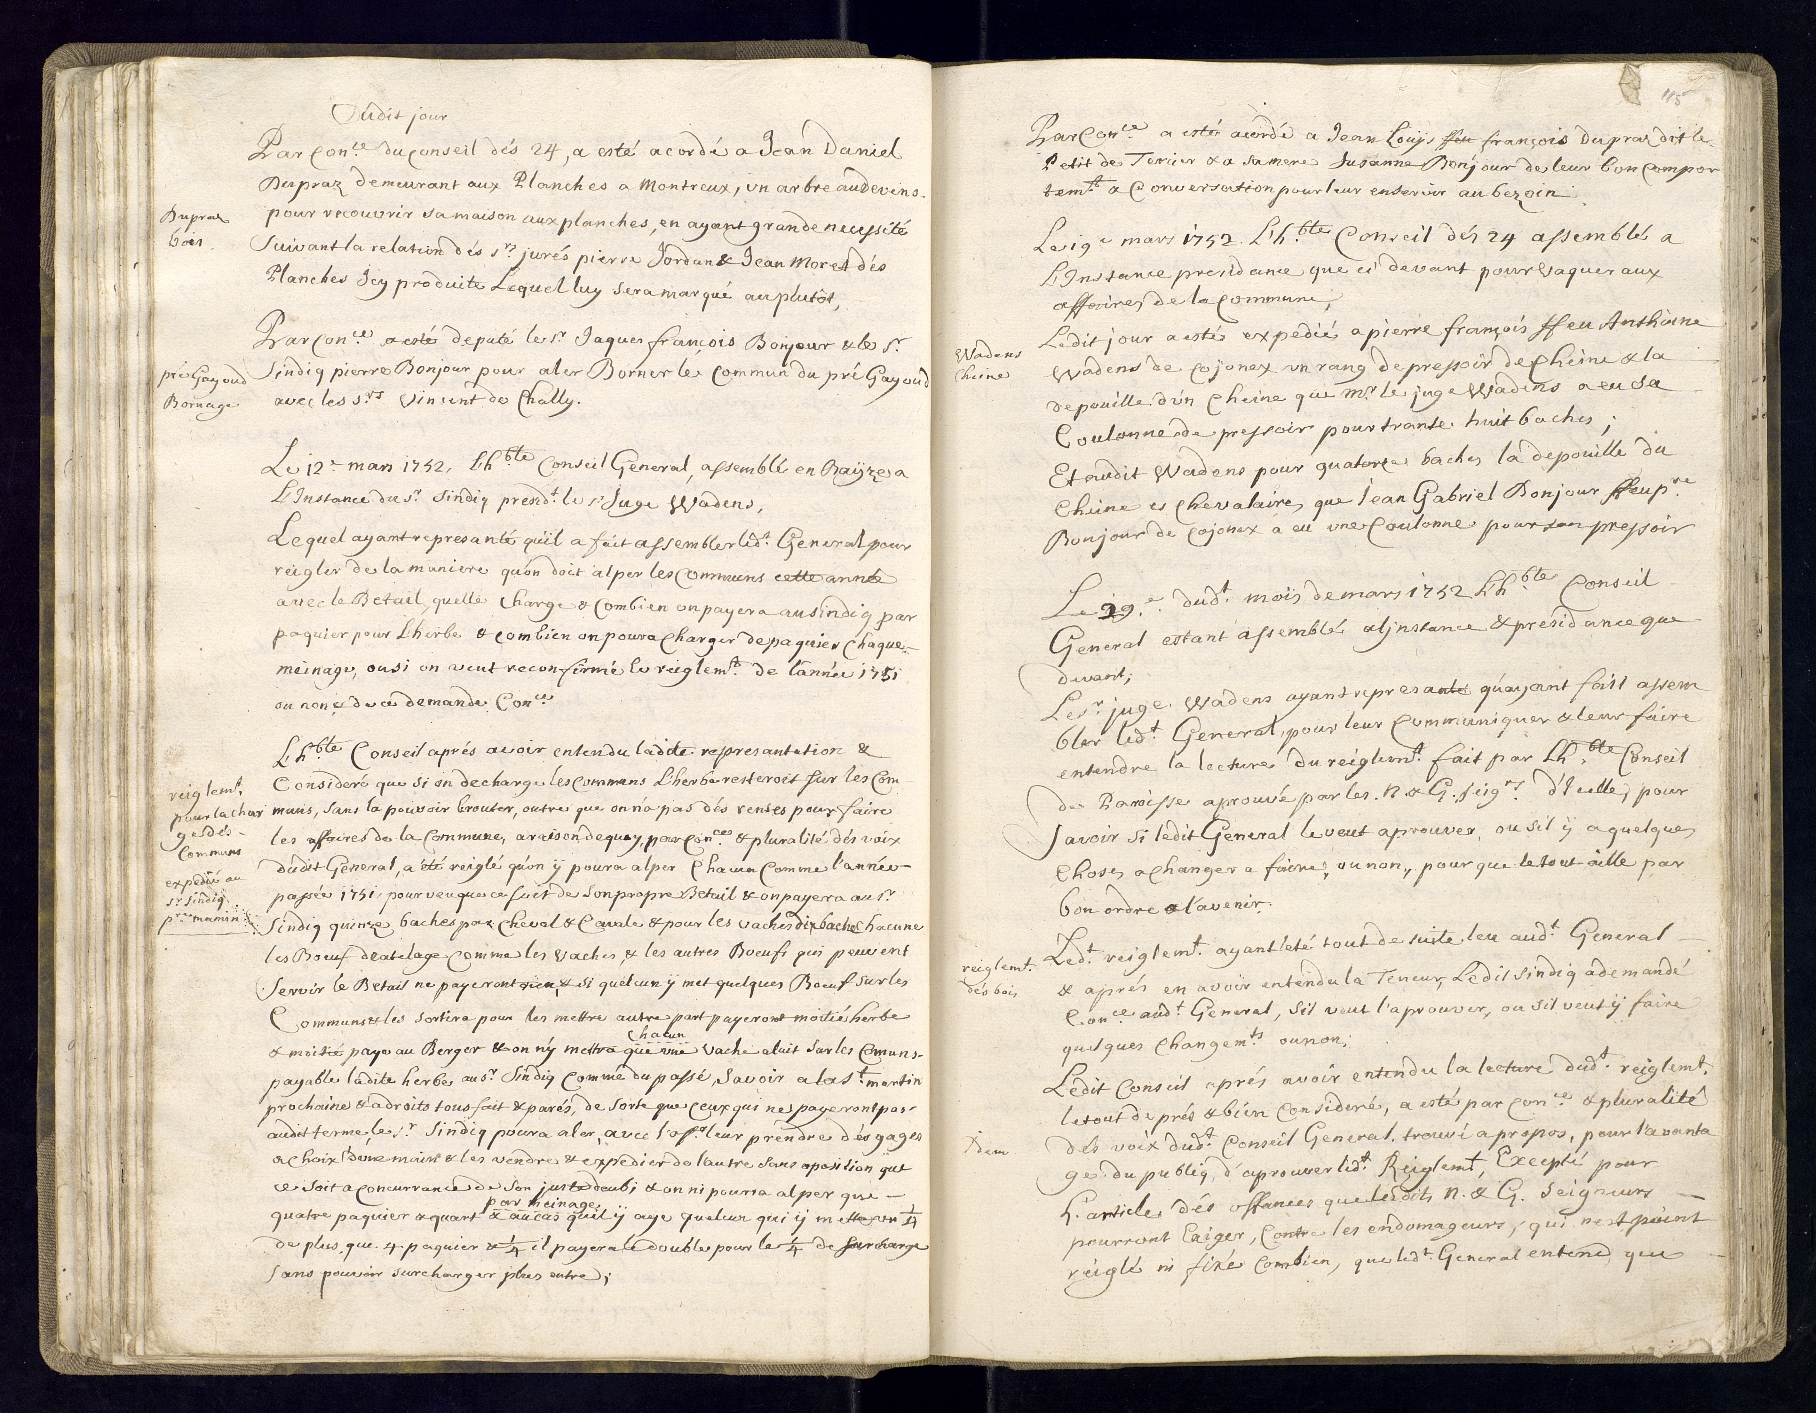 Dudit jour
Par Con.ce du conseil dés 24, a esté acordé a Jean Daniel
Dupraz demeurant aux Planches a Montreux, un arbre au devens
Dupraz
bois.
pour recouvrir sa maison aux planches, en ayant grande necessité
Suivant la relation dés s.rs jurés pierre Jordan & Jean Moret dés
Planches Icy produite Lequel luy sera marqué au plutôt,
Par Con.ce a esté deputé le s.r Jaques françois Bonjour & le s.r
Sindiq pierre Bonjour pour aler Borner lé commun du pré Gayoud
pré Gayoud
Bornage
avec les s.rs Vincent de Chally.
Le 12.e mars 1752, Lh.ble Conseil General, assemblé en Raÿze a
L'Instance du s.r Sindiq presid.t le s.r Juge Wadens,
Lequel ayant represanté qu'il a fait assembler led.t General pour
reigler de la maniere qu'on doit alper les communs cette année
avec le Betail, quelle charge & combien on payera au sindiq par
paquier pour L'herbe & combien on poura charger de paquier chaque
meinage, ou si on veut reconfirmé le reiglem.t de l'année 1751
ou non, de ce demande Con.ce
Lh.ble Conseil aprés avoir entendu ladite represantation &
Consideré que si on decharge les communs L'herbe resteroit sur les Com-
reiglem.t
pour la char
ge dés
Communs
expedié au
s.r sindiq
p.re mamin
muns, sans la pouvoir brouter, outre que on n'a pas dés rentes pour faire
les affaires de la Commune, a raison de quoy, par con.ce & pluralité dés voix
dudit General, a été reiglé qu'on ÿ poura alper chacun comme l'année
passée 1751 pourveu que ce soit de son propre Betail & on payera au s.r
Sindiq quinze baches par Cheval & Cavale & pour les vaches dix baches chacune
les Bœuf d'atelage comme les vaches, & les autres Bœufs qui peuvent
Servir le Betail ne payeront rien, & si quelcun ÿ met quelques Bœuf sur les
Communs & les sortira pour les mettre autre part payeront moitié herbe
chacun
& moitié paye au Berger & on n'y mettra que une vache alait sur les Comuns
payable ladite herbe au s.r Sindiq comme du passé, savoir a la S.t martin
prochaine & a droits tous fait & parés, de sorte que ceux qui ne payeront pas
audit terme, le s.r Sindiq poura aler, avec l'off.r leur prendre dés gages
a choix d'une main & les vendre & expedier de l'autre sans oposition que
ce soit a concurrance de son juste deub; & on ni pourra alper que
par meinage
quatre paquier & quart & au cas qu'il ÿ aye quelcun qui ÿ mette un 1/4
de plus, que 4. paquier & 1/4 il payera le double pour le 1/4 de surcharge
sans pouvoir surcharger plus outre;
115
Par Con.ce a esté acordé a Jean Louÿs ffeu françois Dupraz dit le
Petit de Territet & a sa mere Susanne Bonjour de leur bon compor
tem.t & Conversation pour leur enservir au bezoin
Le 19.e mars 1752. Lh.ble Conseil dés 24 assemblé a
L'Instance presidance que ci devant pour vaquer aux
affaires de la commune,
Ledit jour a esté expedié a pierre françois ffeu Anthoine
Wadens
Cheine
Wadens de Cojonex un rang de pressoir de cheine & la
depouille d'un Cheine que m.r le juge Wadens a eu sa
Coulonne de pressoir pour trante huit baches;
Et audit Wadens pour quatorze baches la depouille du
Cheine es Chevalaires, que Jean Gabriel Bonjour ffeu p.re
Bonjour de Cojonex a eu une Coulonne pour son pressoir
Le 29.e dud.t moÿs de mars 1752 Lh.ble Conseil
General estant assemblé a l'jnstance & presidance que
devant;
Le s.r juge Wadens ayant represanté qu'ayant fait assem
bler led.t General, pour leur communiquer & leur faire
entendre la lecture du reiglem.t fait par Lh.ble Conseil
de Paroisse aprouvé par les N. & G. seig.rs d'Icelle, pour
savoir si ledit General le veut aprouver, ou s'il ÿ a quelques
choses a changer a faire, ou non, pour que le tout aille par
bon ordre a l'avenir.
reiglem.t
dés bois
Led.t reiglem.t ayant été tout de suite leu aud.t General
& aprés en avoir entendu la Teneur, Ledit Sindiq a demandé
Con.ce aud.t General, s'il veut l'aprouver, ou s'il veut ÿ faire
quelques changem.ts ou non;
Ledit Conseil aprés avoir entendu la lecture dud.t reiglem.t
le tout de prés & bien consideré, a esté par con.ce & pluralité
Idem
dés voix dud.t Conseil General, trouvé a propos, pour l'avanta
ge du publiq, d'aprouver led.t Reiglem.t, Excepté pour
L'article dés offances que lesdits N. & G. Seigneurs
pourront Exiger, Contre les endomageurs, qui n'est point
reiglé ni fixé combien, que led.t General entend que